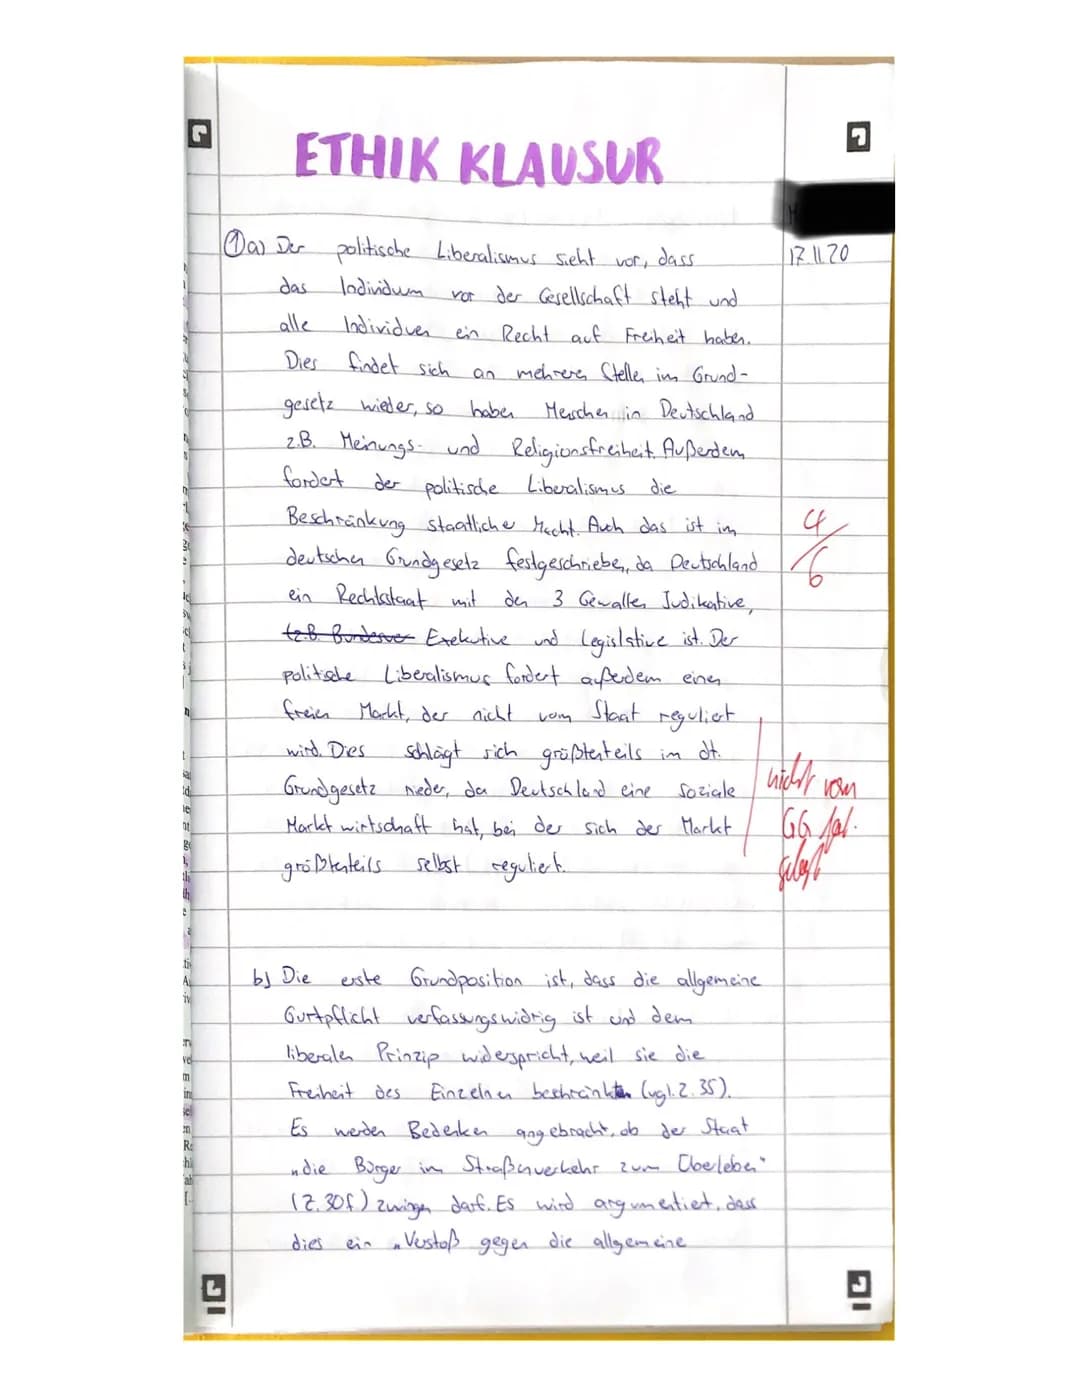 ETHIK KLAUSUR
17.11.20
1 a) Der politische Liberalismus sieht vor, dass
das Individuum vor der Gesellschaft steht und
alle Individuen ein Recht auf Freiheit haben.
Dies findet sich an mehreren Stellen im Grund-
gesetz wieder, so haben Menschen in Deutschland
z.B. Meinungs- und Religionsfreiheit. Außerdem
fordert der politische Liberalismus die
Beschränkung staatlicher Macht. Auch das ist im
deutschen Grundgesetz festgeschrieben, da Deutschland
ein Rechtsstaat mit den 3 Gewalten Judikative,
Exekutive und Legislative ist. Der
politische Liberalismus fordert außerdem einen
freien Markt, der nicht vom Staat reguliert
wird. Dies schlägt sich größtenteils im dt.
Grundgesetz nieder, da Deutschland eine soziale
Marktwirtschaft hat, bei der sich der Markt
größtenteils selbst reguliert.
4/6
nicht vom
GG
b) Die erste Grundposition ist, dass die allgemeine
Gurtpflicht verfassungswidrig ist und dem
liberalen Prinzip widerspricht, weil sie die
Freiheit des Einzelnen beschränkt (vgl. Z. 35).
Es werden Bedenken angebracht, ob der Staat
„die Bürger im Straßenverkehr zum Überleben"
(Z. 30f.) zwingen darf. Es wird argumentiert, dass
dies ein „Verstoß gegen die allgemeine